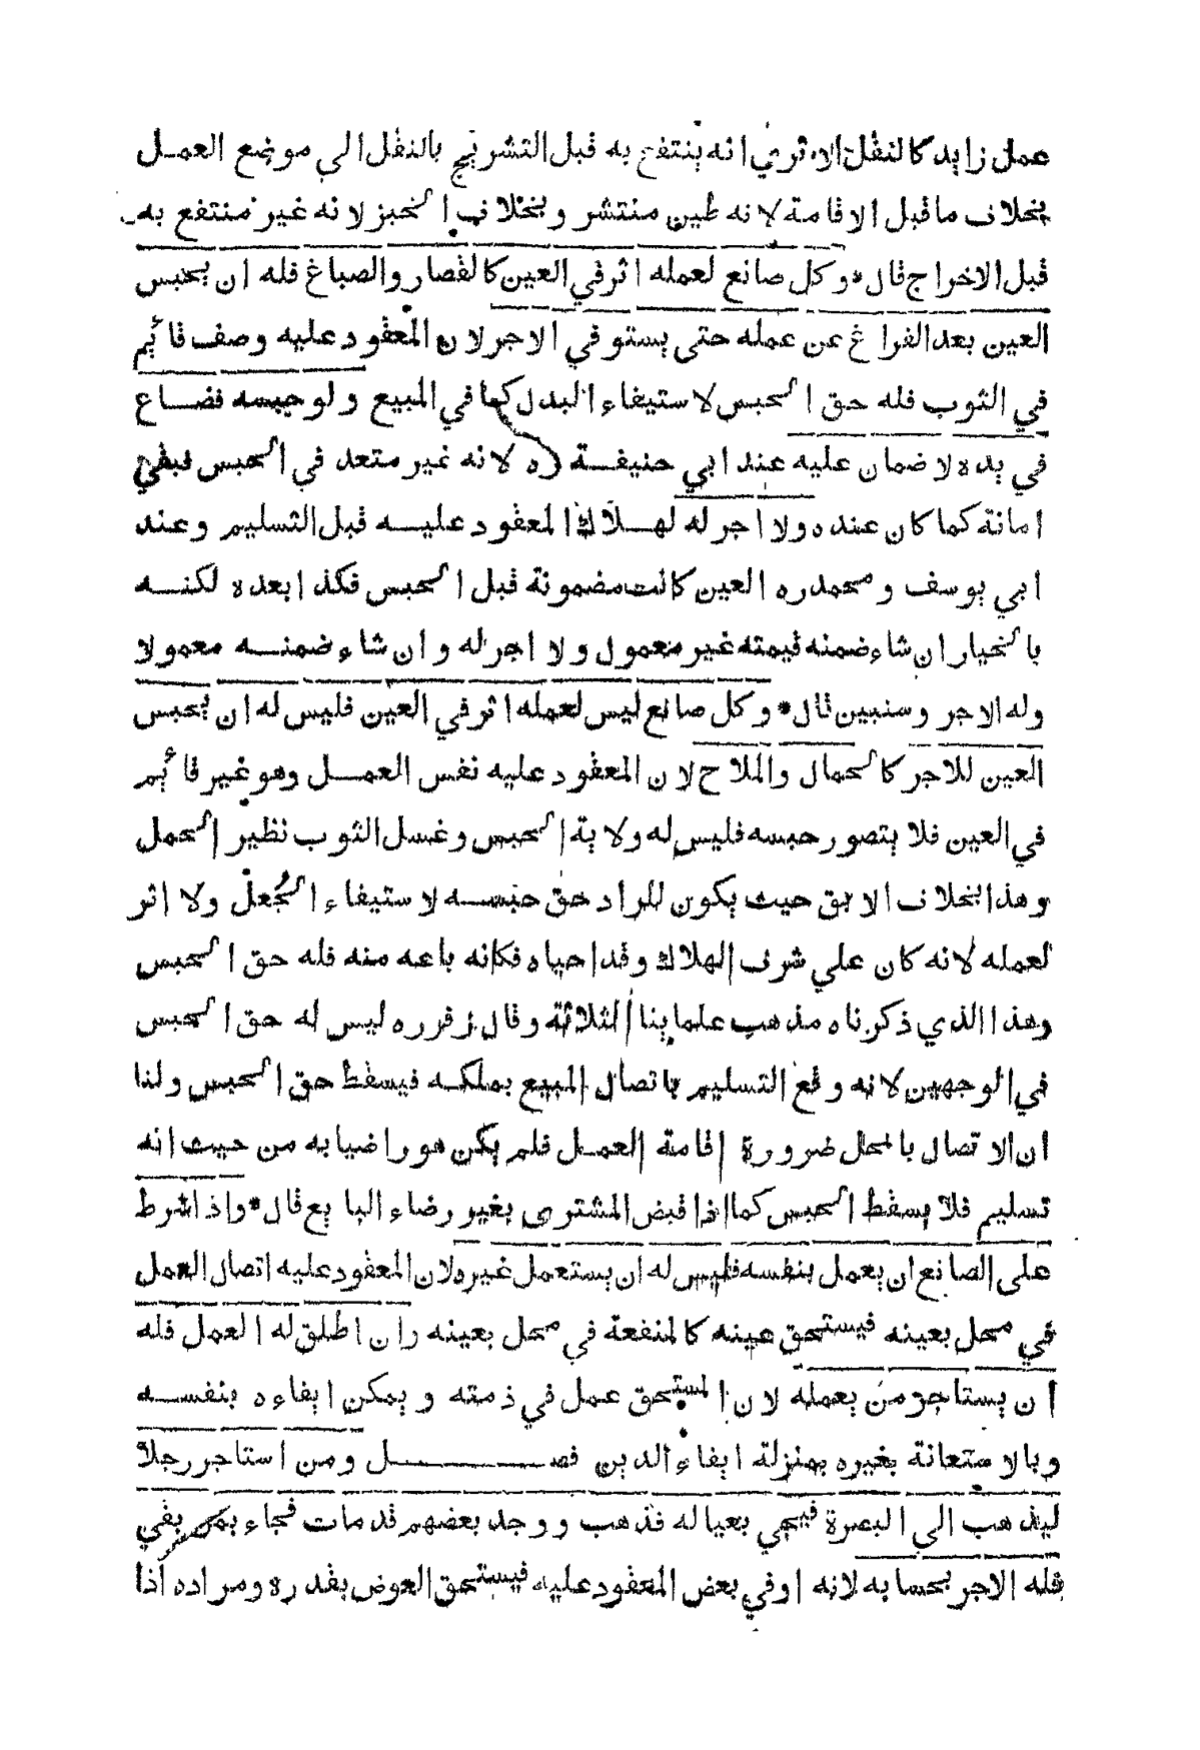 عمل زايد كالنقل الا تري انه ينتفع به قبل التشريج بالنقل الي موضع العمـل
بخلاف ما قبل الاقامة لانه طين منتشر وبخلاف الخبز لانه غير منتفع به
قبل الاخراج قال * وكل صانع لعمله اثر في العين كالقصار والصباغ فله ان يحبس
العين بعد الفراغ عن عمله حتى يستوفي الاجر لان المعقود عليه وصف قائم
في الثوب فله حق الحبس لاستيفاء البدل كما في المبيع ولو حبسه فضـاع
في يده لا ضمان عليه عند ابي حنيفـة ره لانه غير متعد في الحبس فبقي
امانة كما كان عنده ولا اجر له لهـلاك المعقود عليـه قبل التسليم وعند
ابي يوسف ومحمد ره العين كانت مضمونة قبل الحبس فكذا بعده لكنـه
بالخيار ان شاء ضمنه قيمته غير معمول ولا اجر له وان شاء ضمنـه معمولا
وله الاجر وسنبين قال * وكل صانع ليس لعمله اثر في العين فليس له ان يحبس
العين للاجر كالحمال والملاح لان المعقود عليه نفس العمـل وهو غير قائم
في العين فلا يتصور حبسه فليس له ولاية الحبس وغسل الثوب نظير الحمل
وهذا بخلاف الابق حيث يكون للراد حق حبسـه لاستيفاء الجُعل ولا اثر
لعمله لانه كان علي شرف الهلاك وقد احياه فكانه باعه منه فله حق الحبس
وهذا الذي ذكرناه مذهب علماينا الثلاثة وقال زفر ره ليس له حق الحبس
في الوجهين لانه وقع التسليم باتصال المبيع بملكـه فيسقط حق الحبس ولنا
ان الاتصال بالمحل ضرورة اقامة العمـل فلم يكن هو راضيا به من حيث انه
تسليم فلا يسقط الحبس كما اذا قبض المشترى بغير رضاء البايع قال * واذا شرط
على الصانع ان يعمل بنفسه فليس له ان يستعمل غيره لان المعقود عليه اتصال العمل
في محل بعينه فيستحق عينه كالمنفعة في محل بعينه وان اطلق له العمل فله
ان يستاجر من يعمله لان المستحق عمل في ذمته ويمكن ايفاءه بنفسـه
وبالاستعانة بغيره بمنزلة ايفاء الدين فصـــــل ومن استاجر رجلا
ليذهب الى البصرة فيجي بعياله فذهب ووجد بعضهم قد مات فجاء بمن بقي
فله الاجر بحسابه لانه اوفي بعض المعقود عليه فيستحق العوض بقدره ومراده اذا